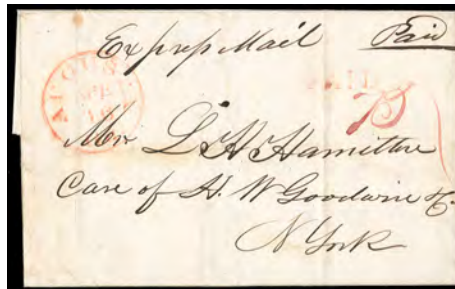 Express Mail Paid
AUGUST
PAID
75
Mr L H Hamilton
Care of H. W Goodwin &
N York